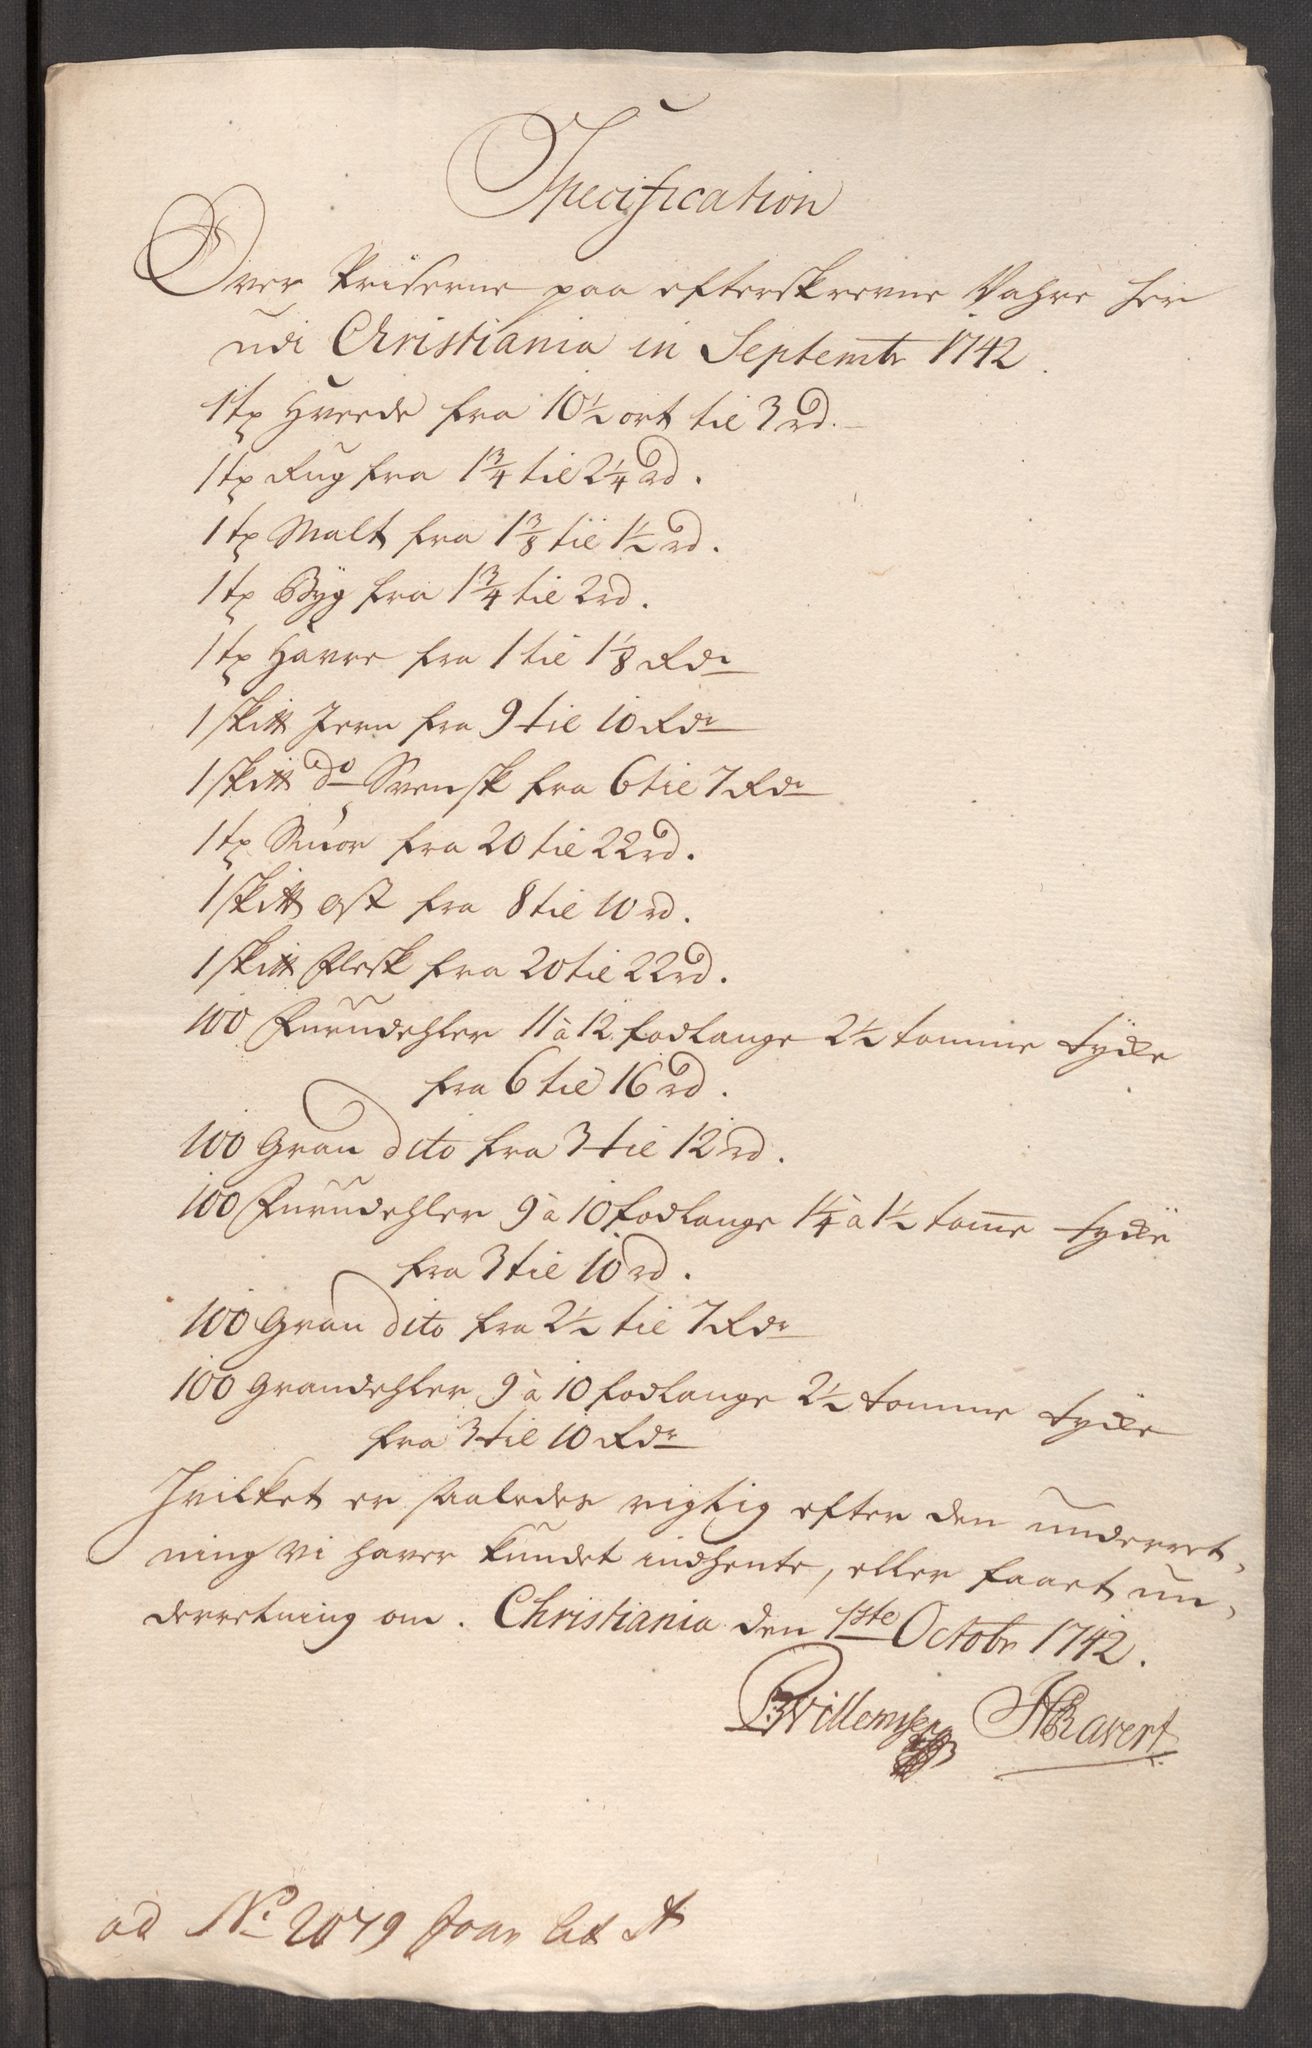 Specification
Over Priserne paa efterskrevne Vahre her
udi Christiania in Septembr 1742.
1 tø Hvede fra 10½ ort til 3 rd.
1 tø Rug fra 1¾ til 2¼ rd.
1 tø Malt fra 1⅜ til 1½ rd.
1 tø Byg fra 1¾ til 2 rd.
1 tø Havre fra 1 til 1⅛ Rdr
1 skitt Jern fra 9 til 10 Rdr
1 skitt do Svensk fra 6 til 7 Rdr
1 tø Smør fra 20 til 22 rd.
1 skitt ost fra 8 til 10 rd.
1 skitt Flesk fra 20 til 22 rd.
100 Furudehler 11 à 12 fodlange 2½ tomme tycke
fra 6 til 16 rd.
100 Gran dito fra 3 til 12 rd.
100 Furudehler 9 à 10 fodlange 1¼ à 1½ tome tycke
fra 3 til 10 rd.
100 Gran dito fra 2½ til 7 Rdr
100 Grandehler 9 à 10 fodlange 2½ tomme tycke
fra 3 til 10 Rdr
Hvilket er saaledes rigtig efter den underret-
ning vi haver kundet indhente, eller faaet un-
derretning om. Christiania den 1ste Octobr 1742.
BWillemsen HRavert
ad No 2079 Lit A